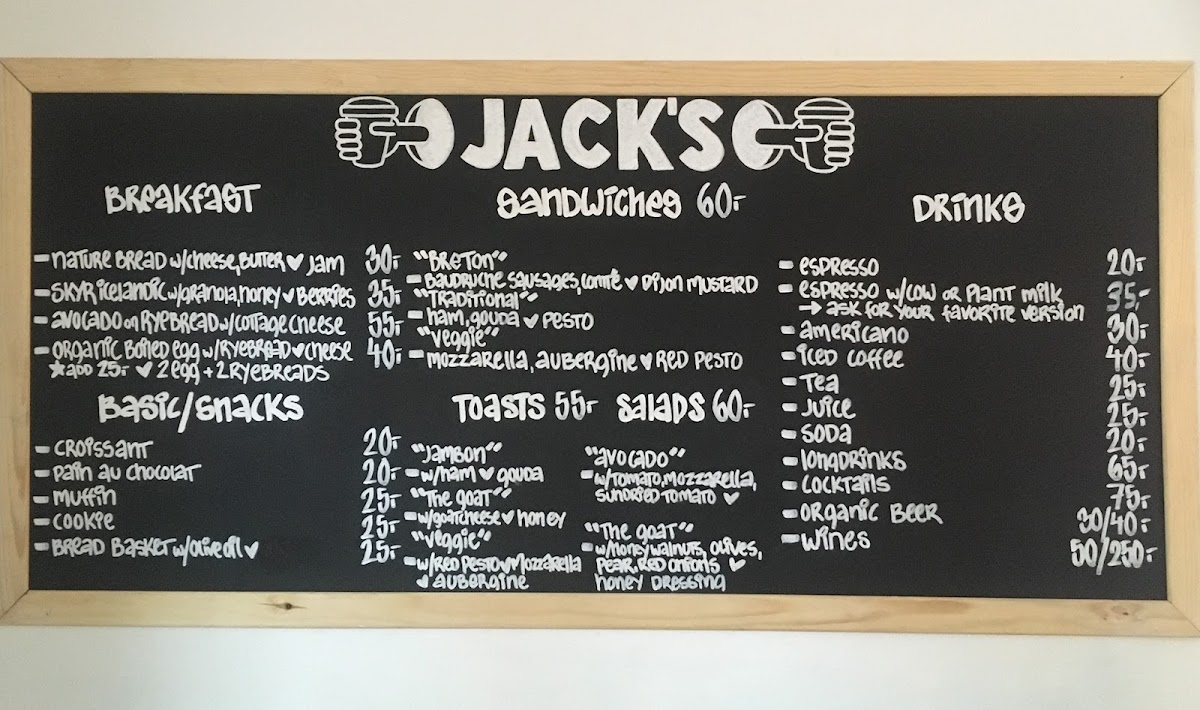 JACK'S
BREAKFAST
- NATURE BREAD w/CHEESE, BUTTER ♥ JAM 30,-
- SKYR ICELANDIC w/GRANOLA, HONEY ♥ BERRIES 35,-
- AVOCADO on RYEBREAD w/COTTAGE CHEESE 55,-
- ORGANIC BOILED EGG w/RYEBREAD ♥ CHEESE 40,-
★ ADD 25,- ♥ 2 EGG + 2 RYEBREADS
BASIC/SNACKS
- CROISSANT 20,-
- PAIN AU CHOCOLAT 20,-
- MUFFIN 25,-
- COOKIE 25,-
- BREAD BASKET w/OLIVE OIL ♥ 25,-
SANDWICHES 60,-
"BRETON"
- BAUDRUCHE SAUSAGES, COMTÉ ♥ DIJON MUSTARD
"TRADITIONAL"
- HAM, GOUDA ♥ PESTO
"VEGGIE"
- MOZZARELLA, AUBERGINE ♥ RED PESTO
TOASTS 55,-
"JAMBON"
- w/HAM ♥ GOUDA
"THE GOAT"
- w/GOATCHEESE ♥ HONEY
"VEGGIE"
- w/RED PESTO ♥ MOZZARELLA
♥ AUBERGINE
SALADS 60,-
"AVOCADO"
- w/TOMATO, MOZZARELLA,
SUNDRIED TOMATO ♥
"THE GOAT"
- w/HONEY WALNUTS, OLIVES,
PEAR, RED ONIONS ♥
HONEY DRESSING
DRINKS
- ESPRESSO 20,-
- ESPRESSO w/COW OR PLANT MILK 35,-
→ ASK FOR YOUR FAVORITE VERSION
- AMERICANO 30,-
- ICED COFFEE 40,-
- TEA 25,-
- JUICE 25,-
- SODA 20,-
- LONGDRINKS 65,-
- COCKTAILS 75,-
- ORGANIC BEER 30/40,-
- WINES 50/250,-